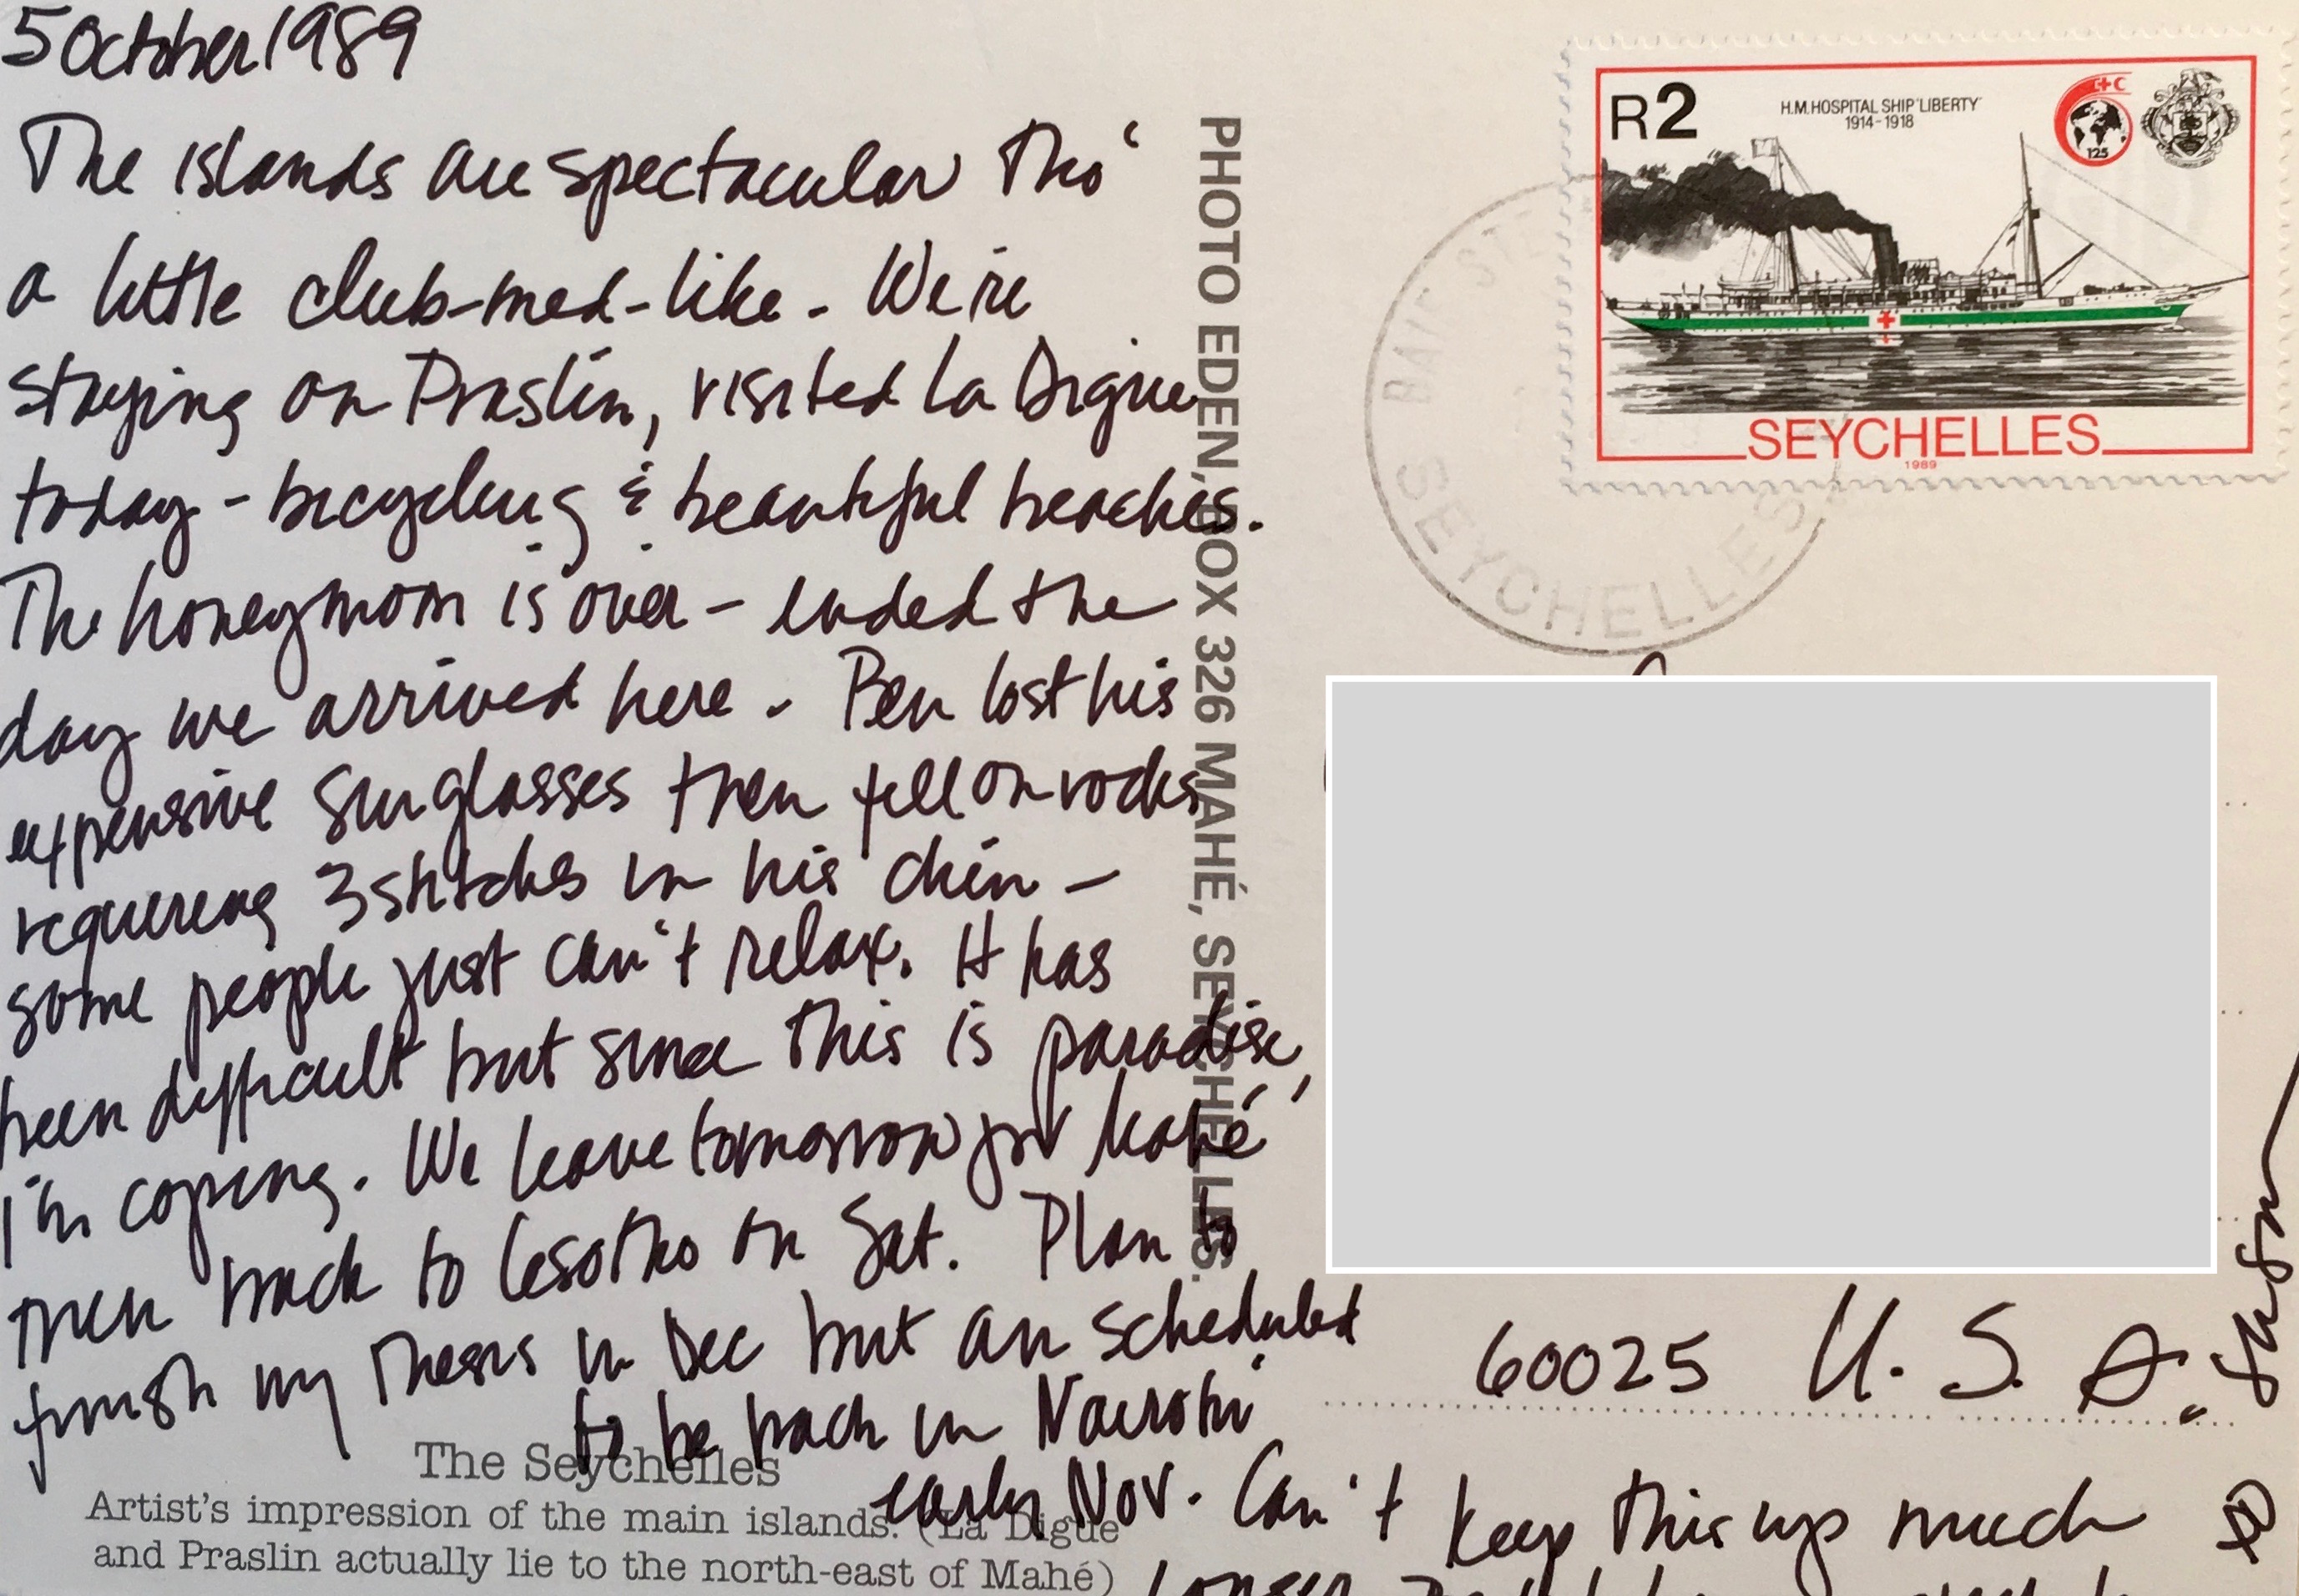 5 October 1989
The islands are spectacular tho'
a little club-med-like - We're
staying on Praslin, visited La Digue
today - bicycling & beautiful beaches.
The honeymoon is over - ended the
day we arrived here - Ben lost his
expensive sunglasses then fell on rocks
requiring 3 stitches in his chin -
some people just can't relax. It has
been difficult but since this is paradise,
I'm coping. We leave tomorrow for Mahé
then back to Lesotho on Sat. Plan to
finish my thesis in Dec but am scheduled
to be back in Nairobi
early Nov. Can't keep this up much
longer
Susan
The Seychelles
Artist's impression of the main islands. (La Digue
and Praslin actually lie to the north-east of Mahé)
PHOTO EDEN, BOX 326 MAHÉ, SEYCHELLES.
R2
H.M. HOSPITAL SHIP 'LIBERTY'
1914-1918
125
SEYCHELLES
1989
BAIE STE
SEYCHELLES
60025 U.S.A.